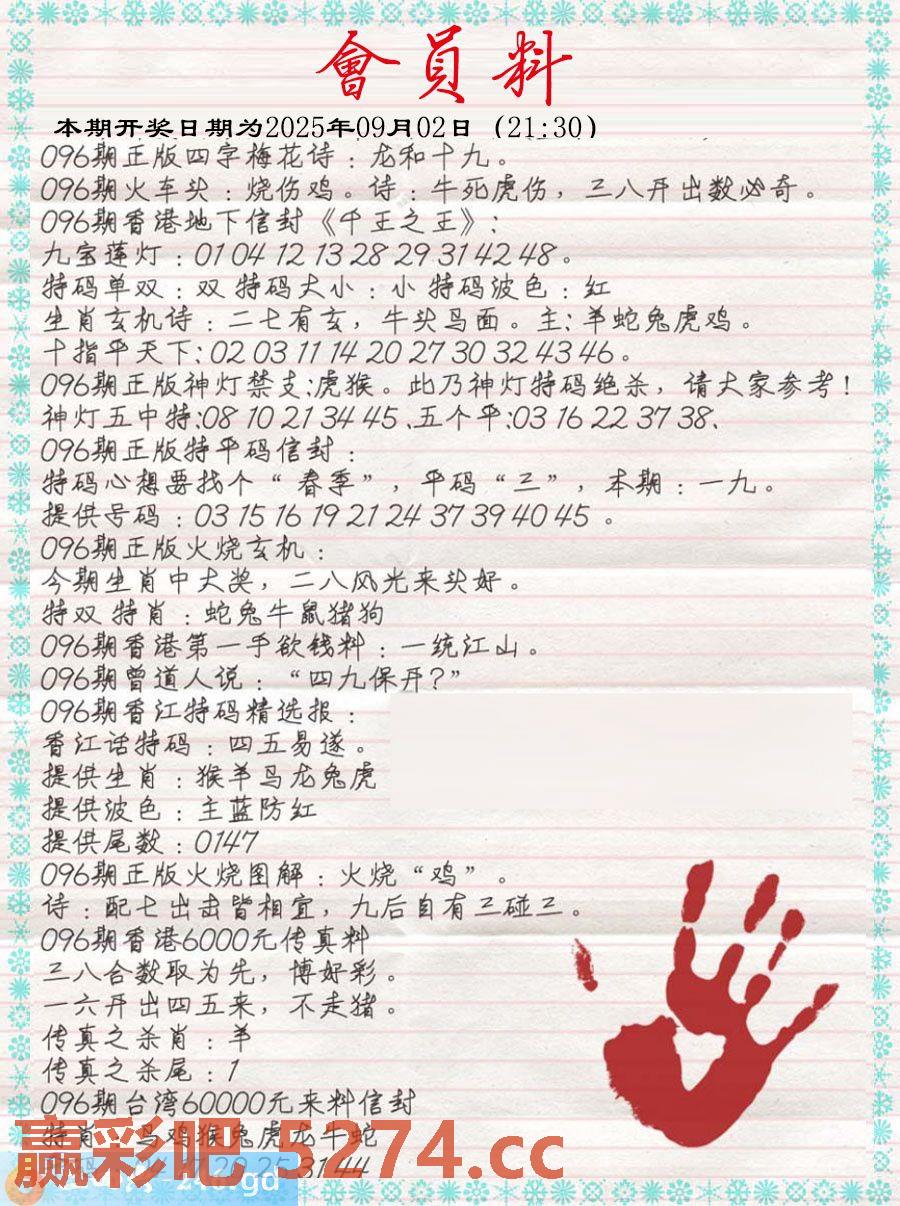 會員料
本期开奖日期为2025年09月02日（21:30）
096期正版四字梅花诗：龙和十九。
096期火车头：烧伤鸡。诗：牛死虎伤，三八开出数必奇。
096期香港地下信封《千王之王》：
九宝莲灯：01 04 12 13 28 29 31 42 48。
特码单双：双 特码大小：小 特码波色：红
生肖玄机诗：二七有玄，牛头马面。主:羊蛇兔虎鸡。
十指平天下:02 03 11 14 20 27 30 32 43 46。
096期正版神灯禁支:虎猴。此乃神灯特码绝杀，请大家参考！
神灯五中特:08 10 21 34 45、五个平:03 16 22 37 38、
096期正版特平码信封：
特码心想要找个“春季”，平码“三”，本期：一九。
提供号码：03 15 16 19 21 24 37 39 40 45 。
096期正版火烧玄机：
今期生肖中大奖，二八风光来头好。
特双 特肖：蛇兔牛鼠猪狗
096期香港第一手欲钱料：一统江山。
096期曾道人说：“四九保开?”
096期香江特码精选报：
香江话特码：四五易遂。
提供生肖：猴羊马龙兔虎
提供波色：主蓝防红
提供尾数：0147
096期正版火烧图解：火烧“鸡”。
诗：配七出击皆相宜，九后自有三碰三。
096期香港6000元传真料
三八合数取为先，博好彩。
一六开出四五来，不走猪。
传真之杀肖：羊
传真之杀尾：1
096期台湾60000元来料信封
特肖：马鸡猴兔虎龙牛蛇
赢彩吧.5274.cc
29 25 31 44